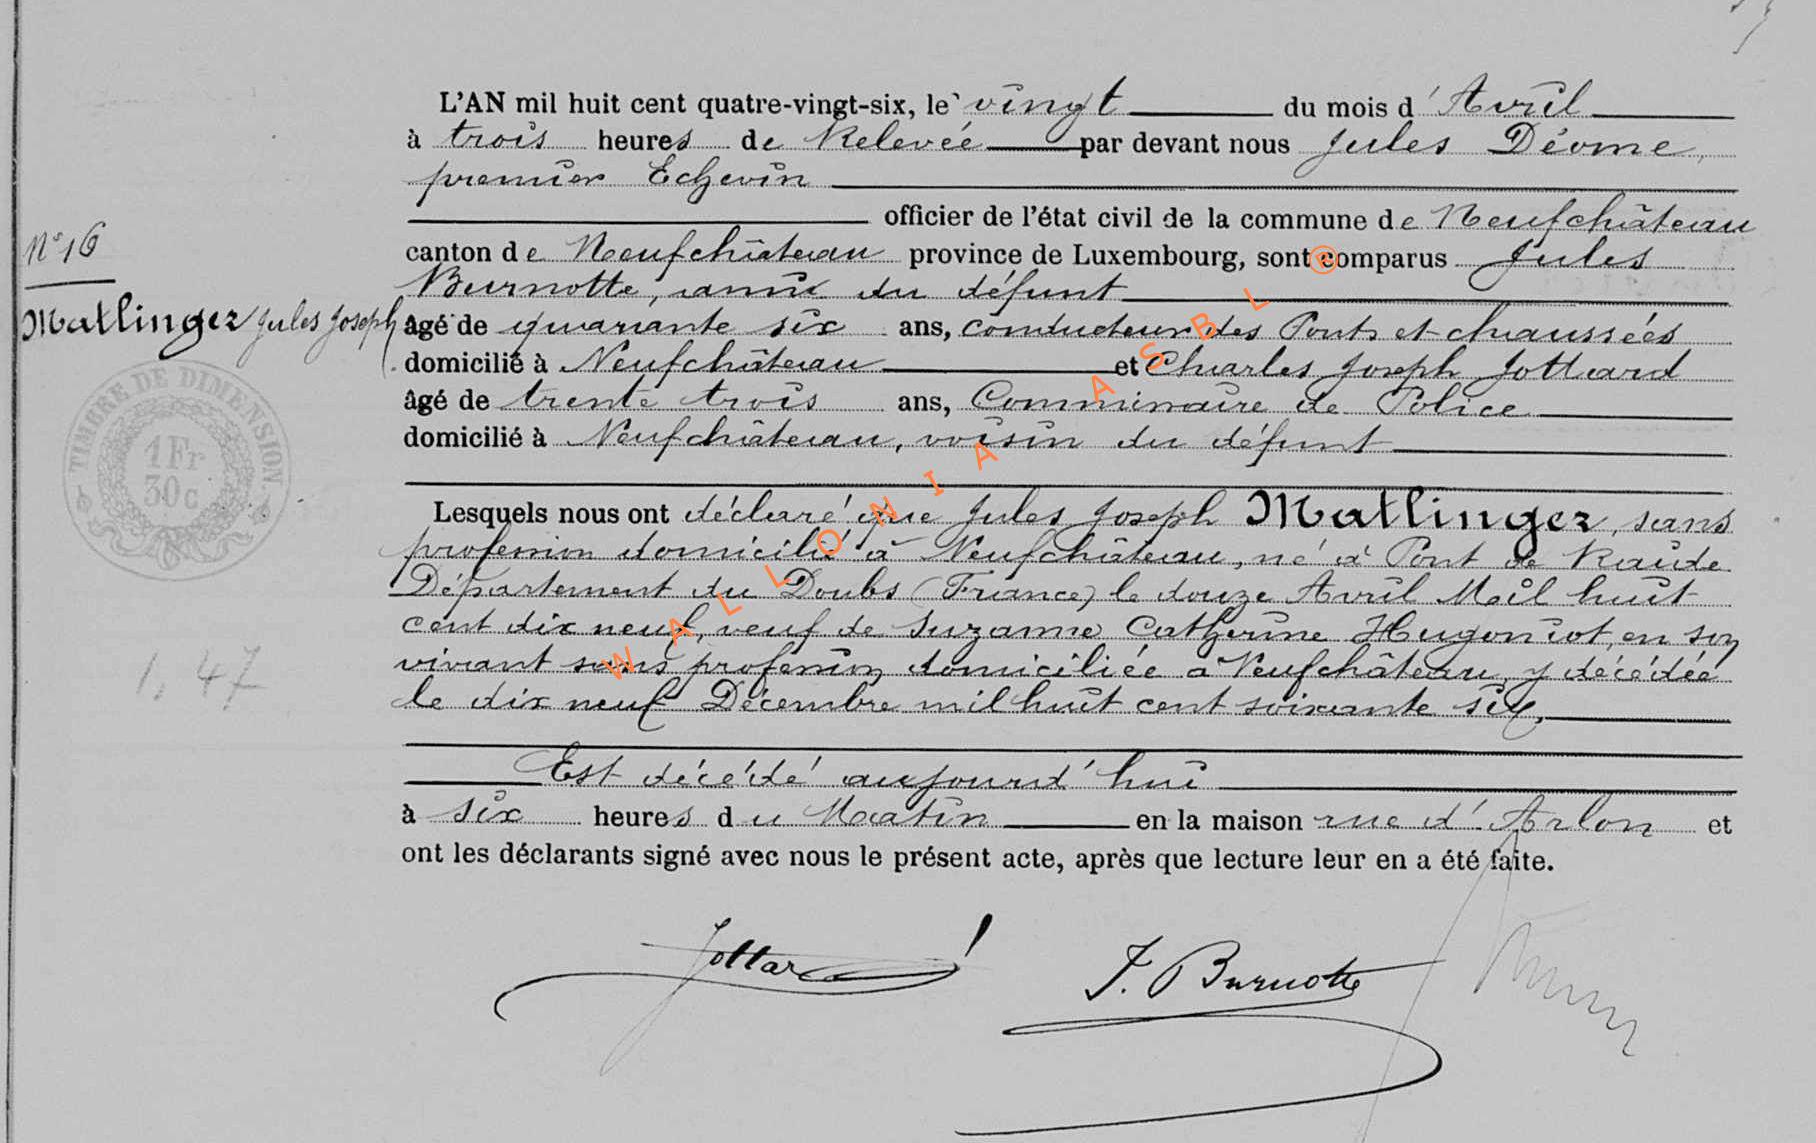 L'AN mil huit cent quatre-vingt-six, le vingt du mois d'Avril
à trois heures de Relevée par devant nous Jules Déome,
premier Echevin
officier de l'état civil de la commune de Neufchâteau
N° 16
canton de Neufchâteau province de Luxembourg, sont comparus Jules
Burnotte, ami du défunt
Matlinger Jules Joseph
âgé de quarante six ans, conducteur des Ponts et chaussées
domicilié à Neufchâteau et Charles Joseph Jottard
âgé de trente trois ans, Commissaire de Police
domicilié à Neufchâteau, voisin du défunt
TIMBRE DE DIMENSION
1 Fr
30c
Lesquels nous ont déclaré que Jules Joseph Matlinger, sans
profession domicilié à Neufchâteau, né à Pont de Raide
Département du Doubs (France) le douze Avril Mil huit
cent dix neuf, veuf de Suzanne Catherine Hugoniot, en son
vivant sans profession domiciliée à Neufchâteau, y décédée
1,47
le dix neuf Décembre mil huit cent soixante six,
Est décédé aujourd'hui
à six heures du Matin en la maison rue d'Arlon et
ont les déclarants signé avec nous le présent acte, après que lecture leur en a été faite.
Jottard
J. Burnotte
WALLONIA ASBL ®